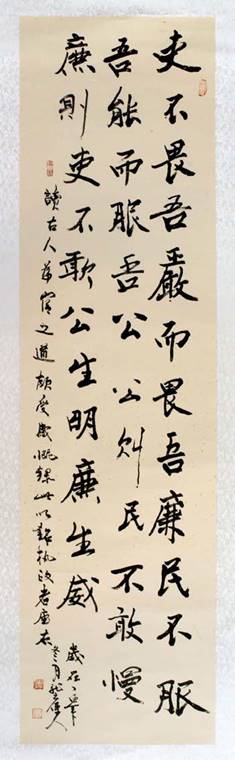 吏不畏吾嚴而畏吾廉民不服
吾能而服吾公公則民不敢慢
廉則吏不敢公生明廉生威
讀古人為官之道頗受感慨錄此以 執政者座右
歲在
冬月